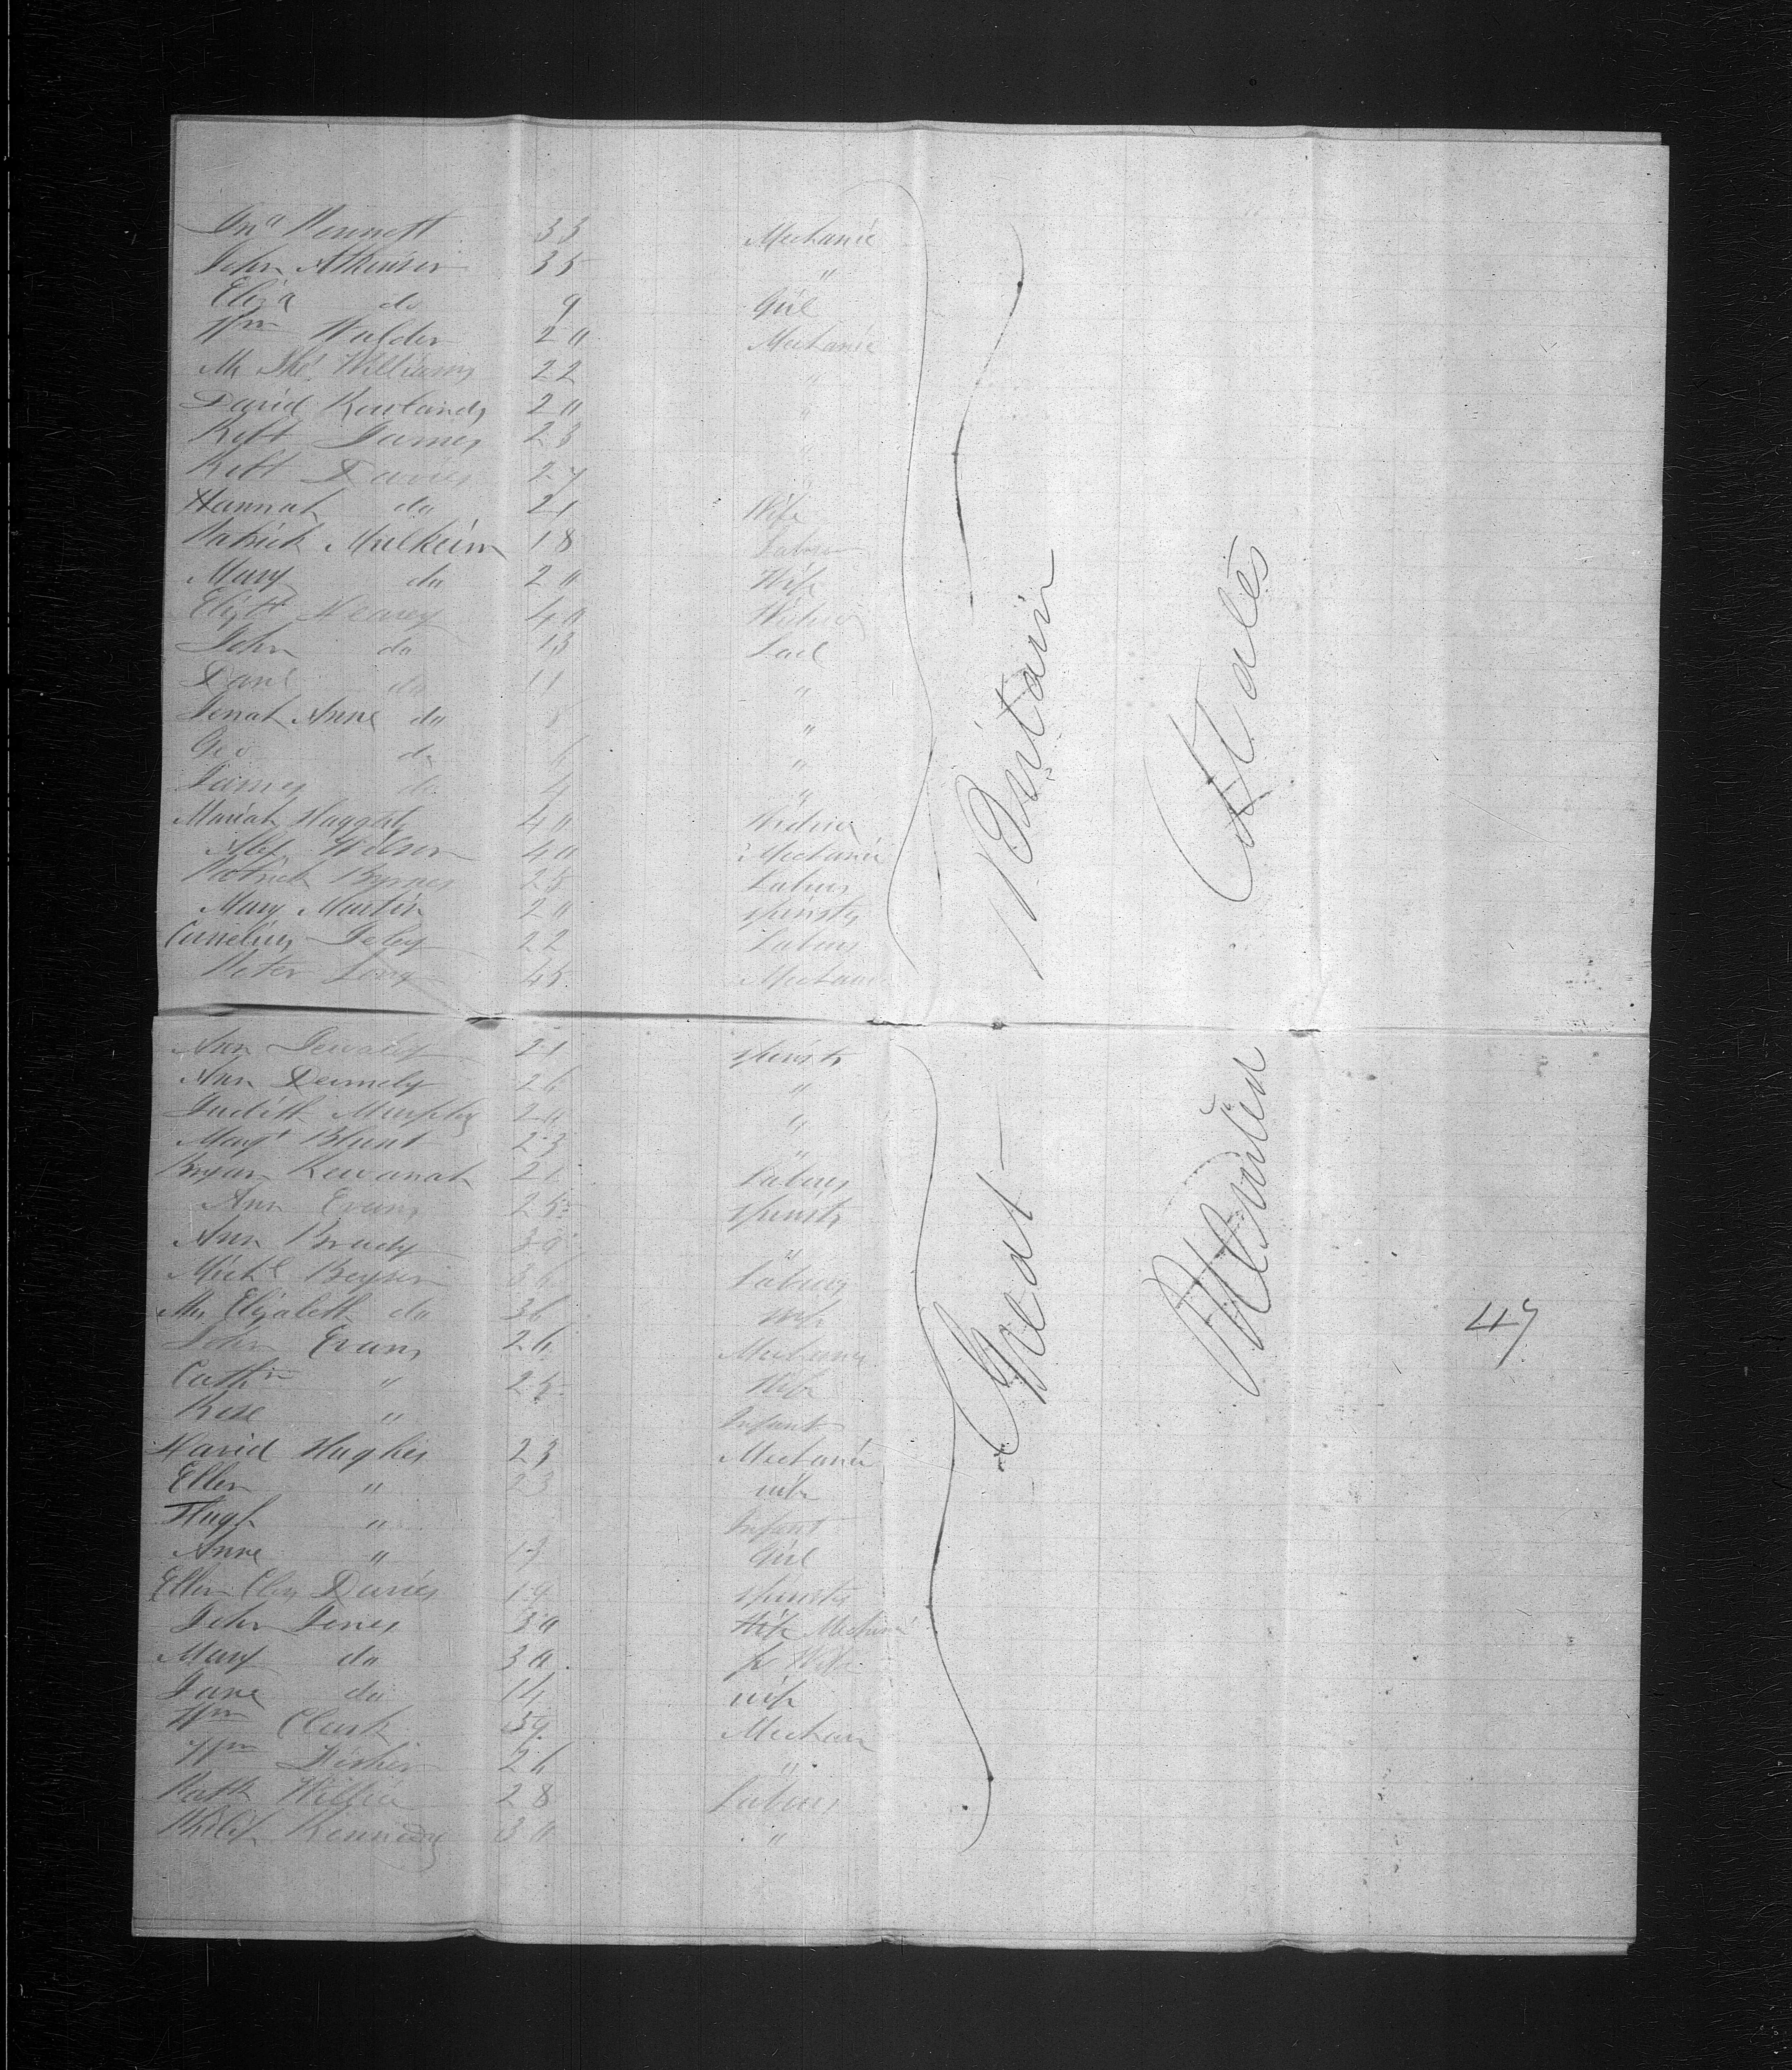 Jna Bennett 33 Mechanic
John Atkinson 35 "
Eliza do 9 Girl
Wm Walder 20 Mechanic
Mr Thos Williams 22 "
David Rowlands 20 "
Robt James 23 "
Robt Davies 27 "
Hannah do 21 Wife
Patrick Mulkeirn 18 Labour
Mary do 20 Wife
Elizth Nearey 40 Widow
John do 13 Lad
Danl do 11 "
Sarah Anne do 8 "
Geo do 6 "
James do 4 "
Mariah Haggerty 40 Widow
Alex Wilson 40 Mechanic
Patrick Byrnes 25 Labour
Mary Martin 20 spinstr
Cornelius 22 Labour
Peter Long 45 Mechanic
Ann 21 spinstr
Ann 26 "
Judith Murphy 20 "
Margt Blunt 23 "
Bryan Kewanah 21 Labour
Ann Evans 25 spinstr
Ann Brady 30 "
Michl 36 Labour
Mrs Elizabeth do 36 wife
John Evans 26 Mechanic
Cathn " 25 Wife
Rose " Infant
David Hughes 23 Mechanic
Ellen " 23 wife
Hugh " Infant
Anne " Girl
Ellen Davies 19 spinstr
John Jones 30 Wife Mechanic
Mary do 30 Wife
Jane do 14 wife
Wm Clark 39 Mechan
Wm Fisher 26 "
Patk 28 Labour
Philip Kennedy 30 "
Great Britain
United States
47